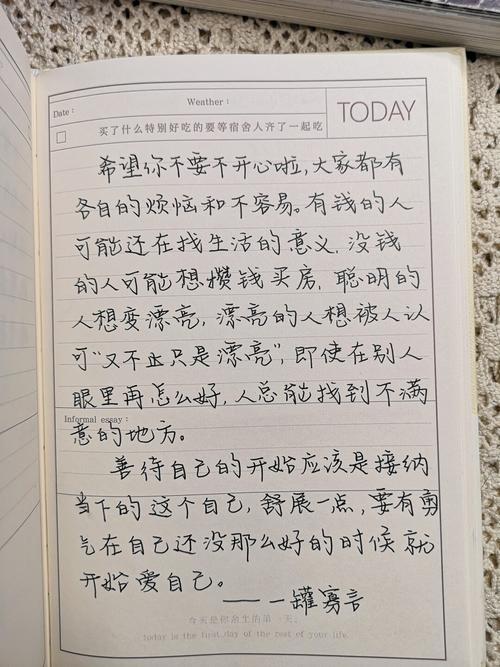 Date:
Weather:
TODAY
买了什么特别好吃的要等宿舍人齐了一起吃
希望你不要不开心啦,大家都有
各自的烦恼和不容易。有钱的人
可能还在找生活的意义,没钱
的人可能想攒钱买房,聪明的
人想变漂亮,漂亮的人想被人认
可“又不止只是漂亮”,即使在别人
眼里再怎么好,人总能找到不满
Informal essay:
意的地方。
善待自己的开始应该是接纳
当下的这个自己,舒展一点,要有勇
气在自己还没那么好的时候就
开始爱自己。
——一罐寡言
今天是你余生的第一天。
today is the first day of the rest of your life.